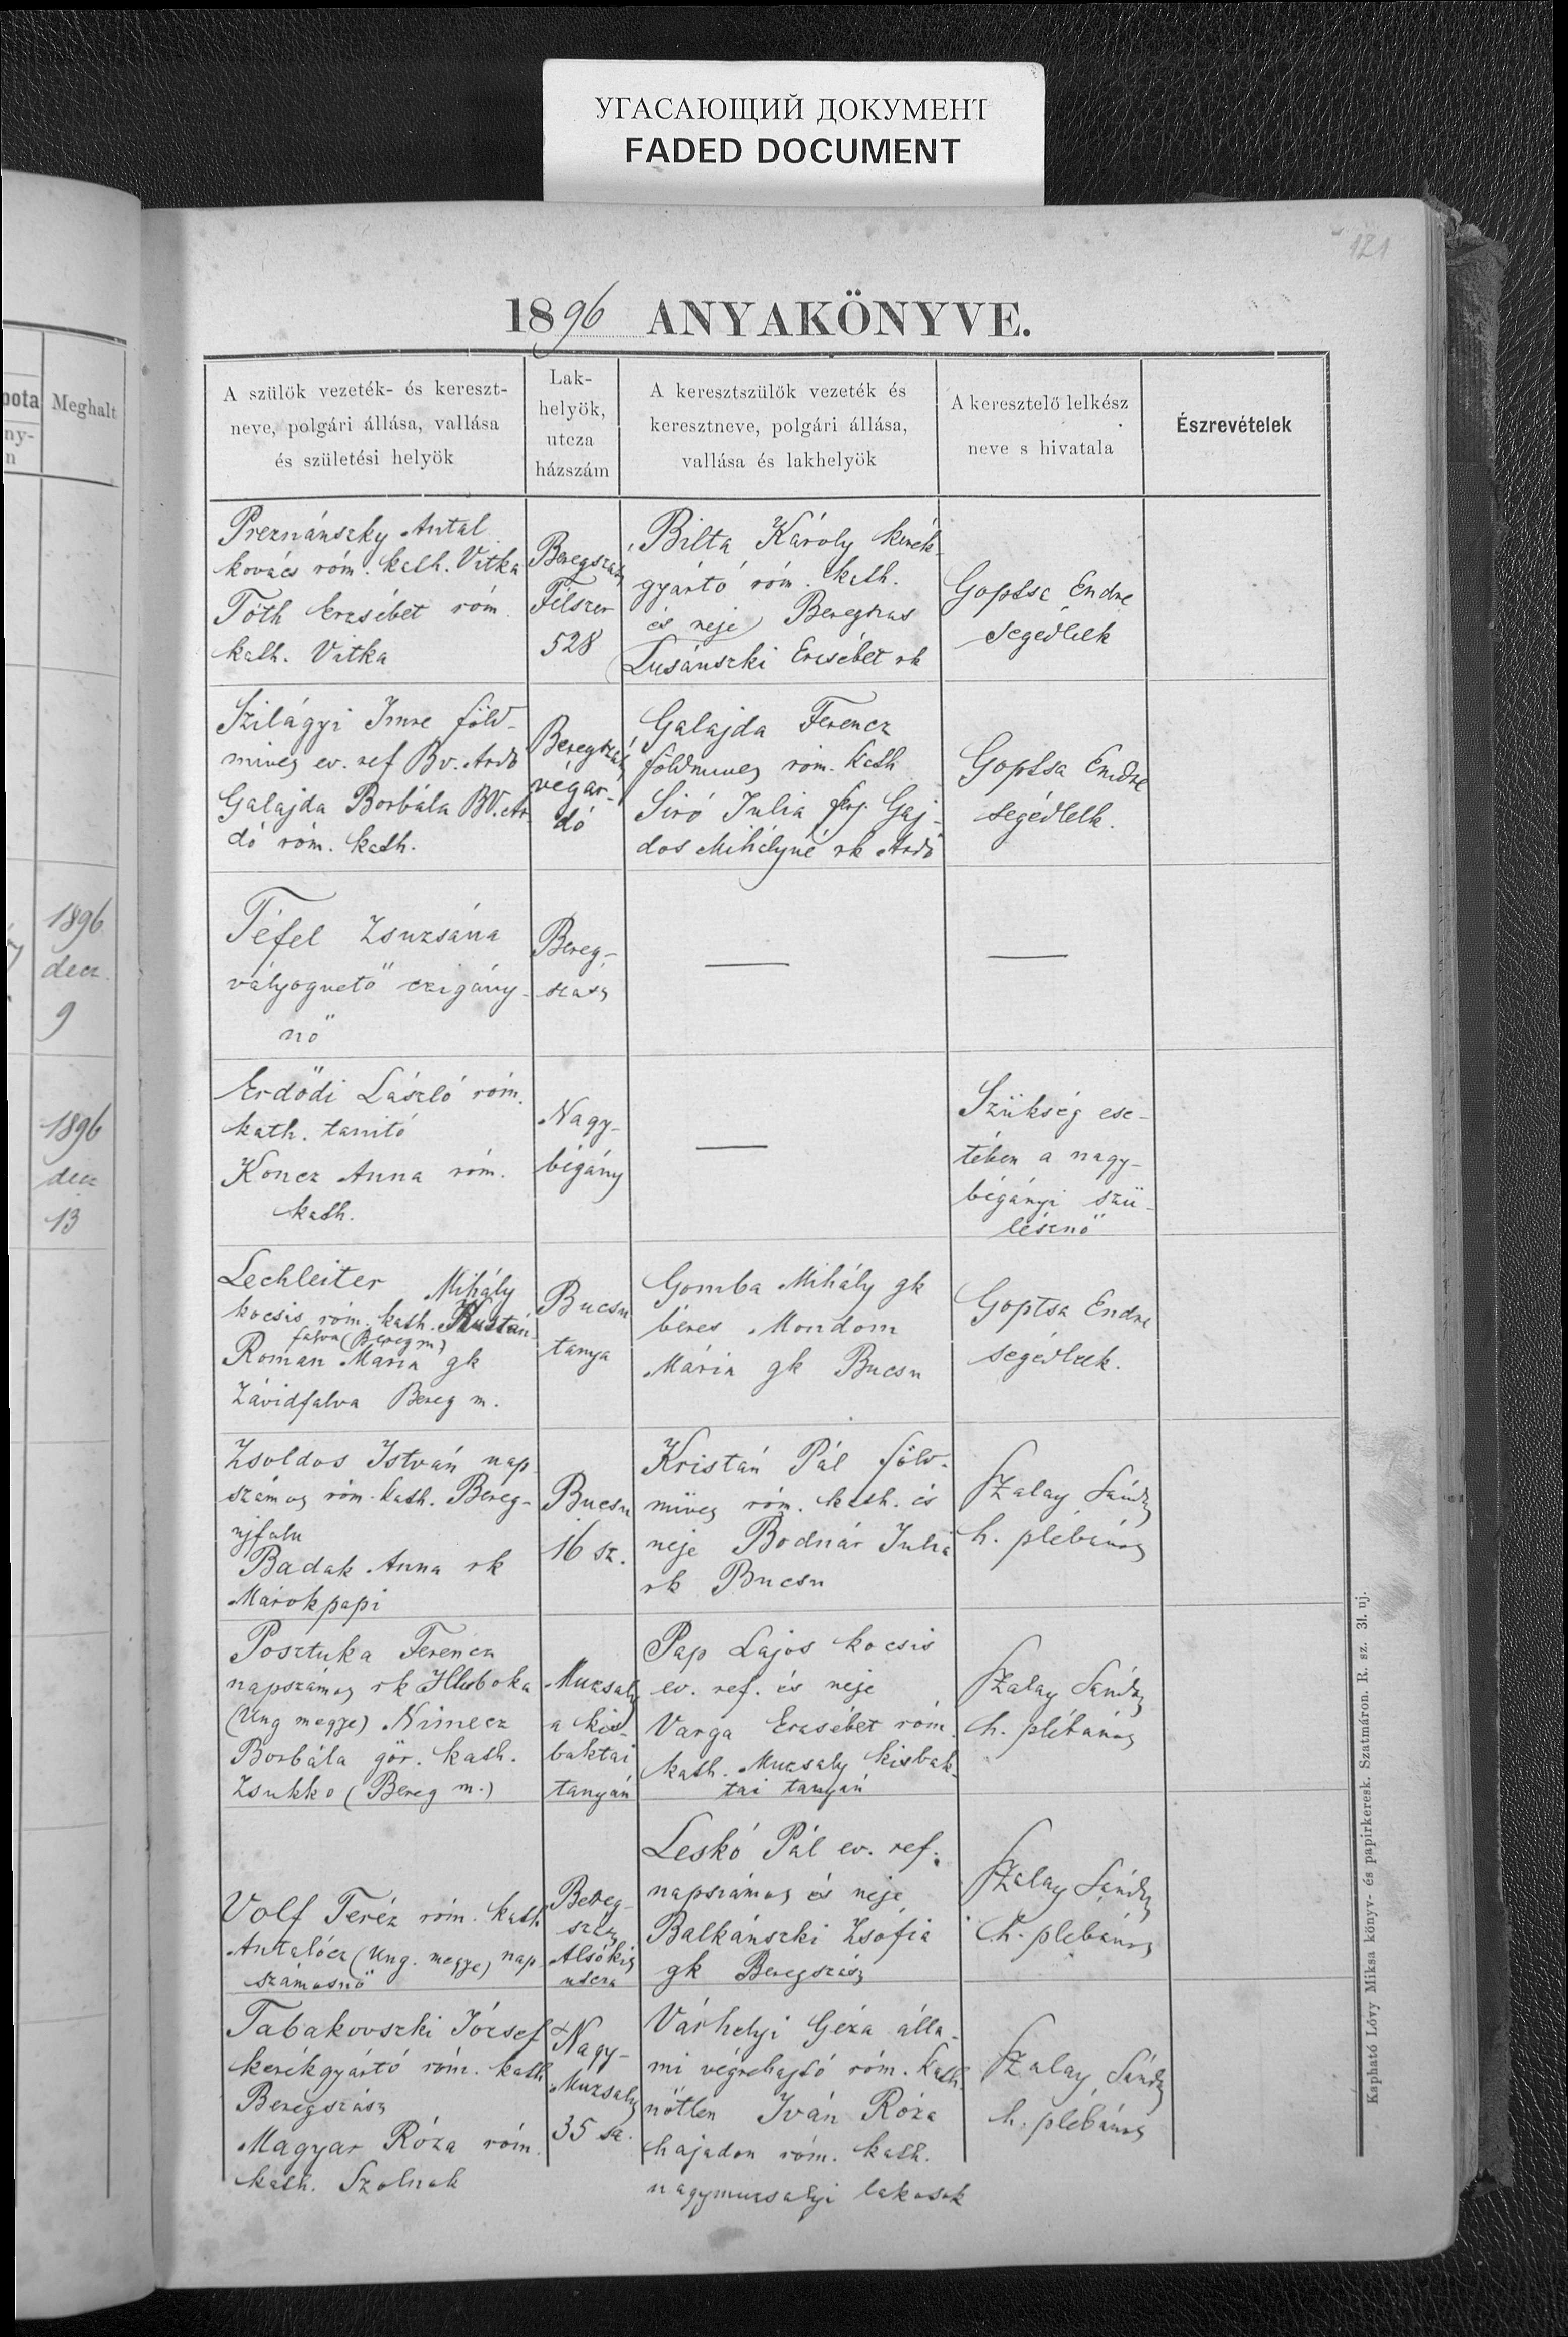 УГАСАЮЩИЙ ДОКУМЕНТ
FADED DOCUMENT
121
1896 ANYAKÖNYVE.
pota
ny-
n
Meghalt
1896
decz.
9
1896
decz
13
A szülök vezeték- és kereszt-
neve, polgári állása, vallása
és születési helyök
Lak-
helyök,
utcza
házszám
A keresztszülök vezeték és
keresztneve, polgári állása,
vallása és lakhelyök
A keresztelö lelkész
neve s hivatala
Észrevételek
Preznánszky Antal
kovács róm. kath. Vitka
Tóth Erzsébet róm.
kath. Vitka
Beregszász
Félszer
528
Bilta Károly kerék-
gyártó róm. kath.
és neje Beregszász
Lusánszki Erzsébet rk
Goptsa Endre
segédlelk
Szilágyi Imre föld-
míves ev. ref Bv. Ardó
Galajda Borbála BV. Ar
dó róm. kath.
Beregszász
végar-
dó
Galajda Ferencz
földmíves róm. kath
Siró Julia férj. Gaj-
dos Mihályné rk Ardó
Goptsa Endre
segédlelk.
Téfel Zsuzsána
vályogvető czigány-
nő
Bereg-
szász
Erdődi László róm.
kath. tanító
Koncz Anna róm.
kath.
Nagy-
bégány
Szükség ese-
tében a nagy-
bégányi szü-
lésznő
Lechleiter Mihály
kocsis róm. kath. Kustán-
falva (Bereg m)
Roman Mária gk
Závidfalva Bereg m.
Bucsu
tanya
Gomba Mihály gk
béres Mondom
Mária gk Bucsu
Goptsa Endre
segédlelk.
Zsoldos István nap
számos róm. kath. Bereg-
ujfalu
Badak Anna rk
Márokpapi
Bucsu
16 sz.
Kristán Pál föld-
míves róm. kath. és
neje Bodnár Julia
rk Bucsu
Szalay Sándor
h. plébános
Posztuka Ferencz
napszámos rk Hluboka
(Ung megye) Nimecz
Borbála gör. kath.
Zsukko (Bereg m.)
Muzsaly
a kis-
baktai
tanyán
Pap Lajos kocsis
ev. ref. és neje
Varga Erzsébet róm.
kath. Muzsaly kisbak-
tai tanyán
Szalay Sándor
h. plébános
Volf Teréz róm. kath
Antalócz (Ung. megye) nap
számosnő
Bereg-
szász
Alsókis
utcza
Leskó Pál ev. ref.
napszámos és neje
Balkánszki Zsófia
gk Beregszász
Szalay Sándor
h. plébános
Tabakovszki József
kerékgyártó róm. kath
Beregszász
Magyar Róza róm.
kath. Szolnok
Nagy-
Muzsaly
35 sz.
Várhelyi Géza álla-
mi végrehajtó róm. kath.
nőtlen Iván Róza
hajadon róm. kath.
nagymuzsalyi lakosok
Szalay Sándor
h. plébános
Kapható Lővy Miksa könyv- és papirkeresk. Szatmáron. R. sz. 31. uj.